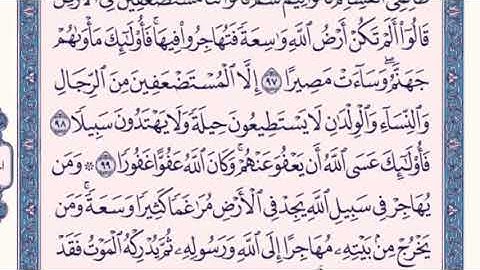 قَالُوٓا۟ أَلَمْ تَكُنْ أَرْضُ ٱللَّهِ وَٰسِعَةً فَتُهَاجِرُوا۟ فِيهَا ۚ فَأُو۟لَٰٓئِكَ مَأْوَىٰهُمْ
جَهَنَّمُ ۖ وَسَآءَتْ مَصِيرًا ٩٧ إِلَّا ٱلْمُسْتَضْعَفِينَ مِنَ ٱلرِّجَالِ
وَٱلنِّسَآءِ وَٱلْوِلْدَٰنِ لَا يَسْتَطِيعُونَ حِيلَةً وَلَا يَهْتَدُونَ سَبِيلًا ٩٨
فَأُو۟لَٰٓئِكَ عَسَى ٱللَّهُ أَن يَعْفُوَ عَنْهُمْ ۚ وَكَانَ ٱللَّهُ عَفُوًّا غَفُورًا ٩٩ ۞ وَمَن
يُهَاجِرْ فِى سَبِيلِ ٱللَّهِ يَجِدْ فِى ٱلْأَرْضِ مُرَٰغَمًا كَثِيرًا وَسَعَةً ۚ وَمَن
يَخْرُجْ مِنۢ بَيْتِهِۦ مُهَاجِرًا إِلَى ٱللَّهِ وَرَسُولِهِۦ ثُمَّ يُدْرِكْهُ ٱلْمَوْتُ فَقَدْ